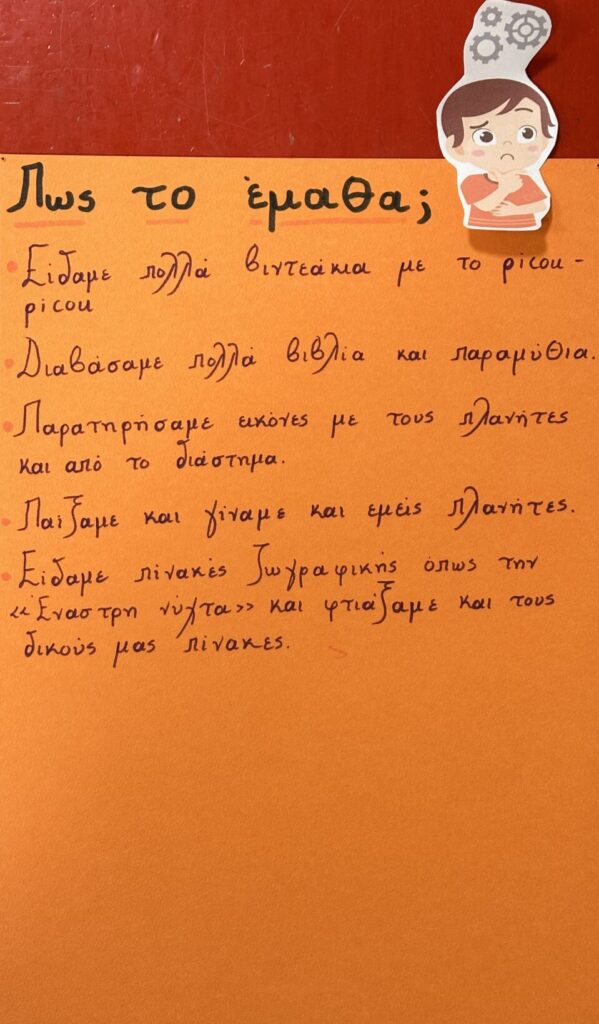 Πως το έμαθα;
• Είδαμε πολλά βιντεάκια με το picou -
picou
• Διαβάσαμε πολλά βιβλία και παραμύθια.
• Παρατηρήσαμε εικόνες με τους πλανήτες
και από το διάστημα.
• Παίξαμε και γίναμε και εμείς πλανήτες.
• Είδαμε πίνακές ζωγραφικής όπως την
«Έναστρη νύχτα» και φτιάξαμε και τους
δικούς μας πίνακες.